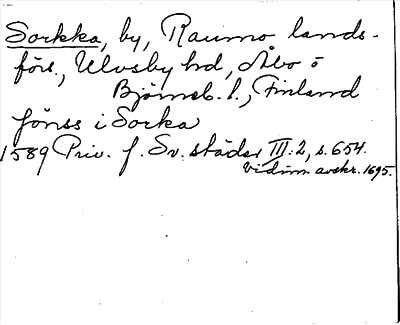 Sorkka, by, Raumo lands-
förs., Ulvsby hd, Åbo o
Björneb. l., Finland
fönss i Sorka
1589 Priv. f. Sv. städer III:2, s. 654.
Vidim. avskr. 1695.